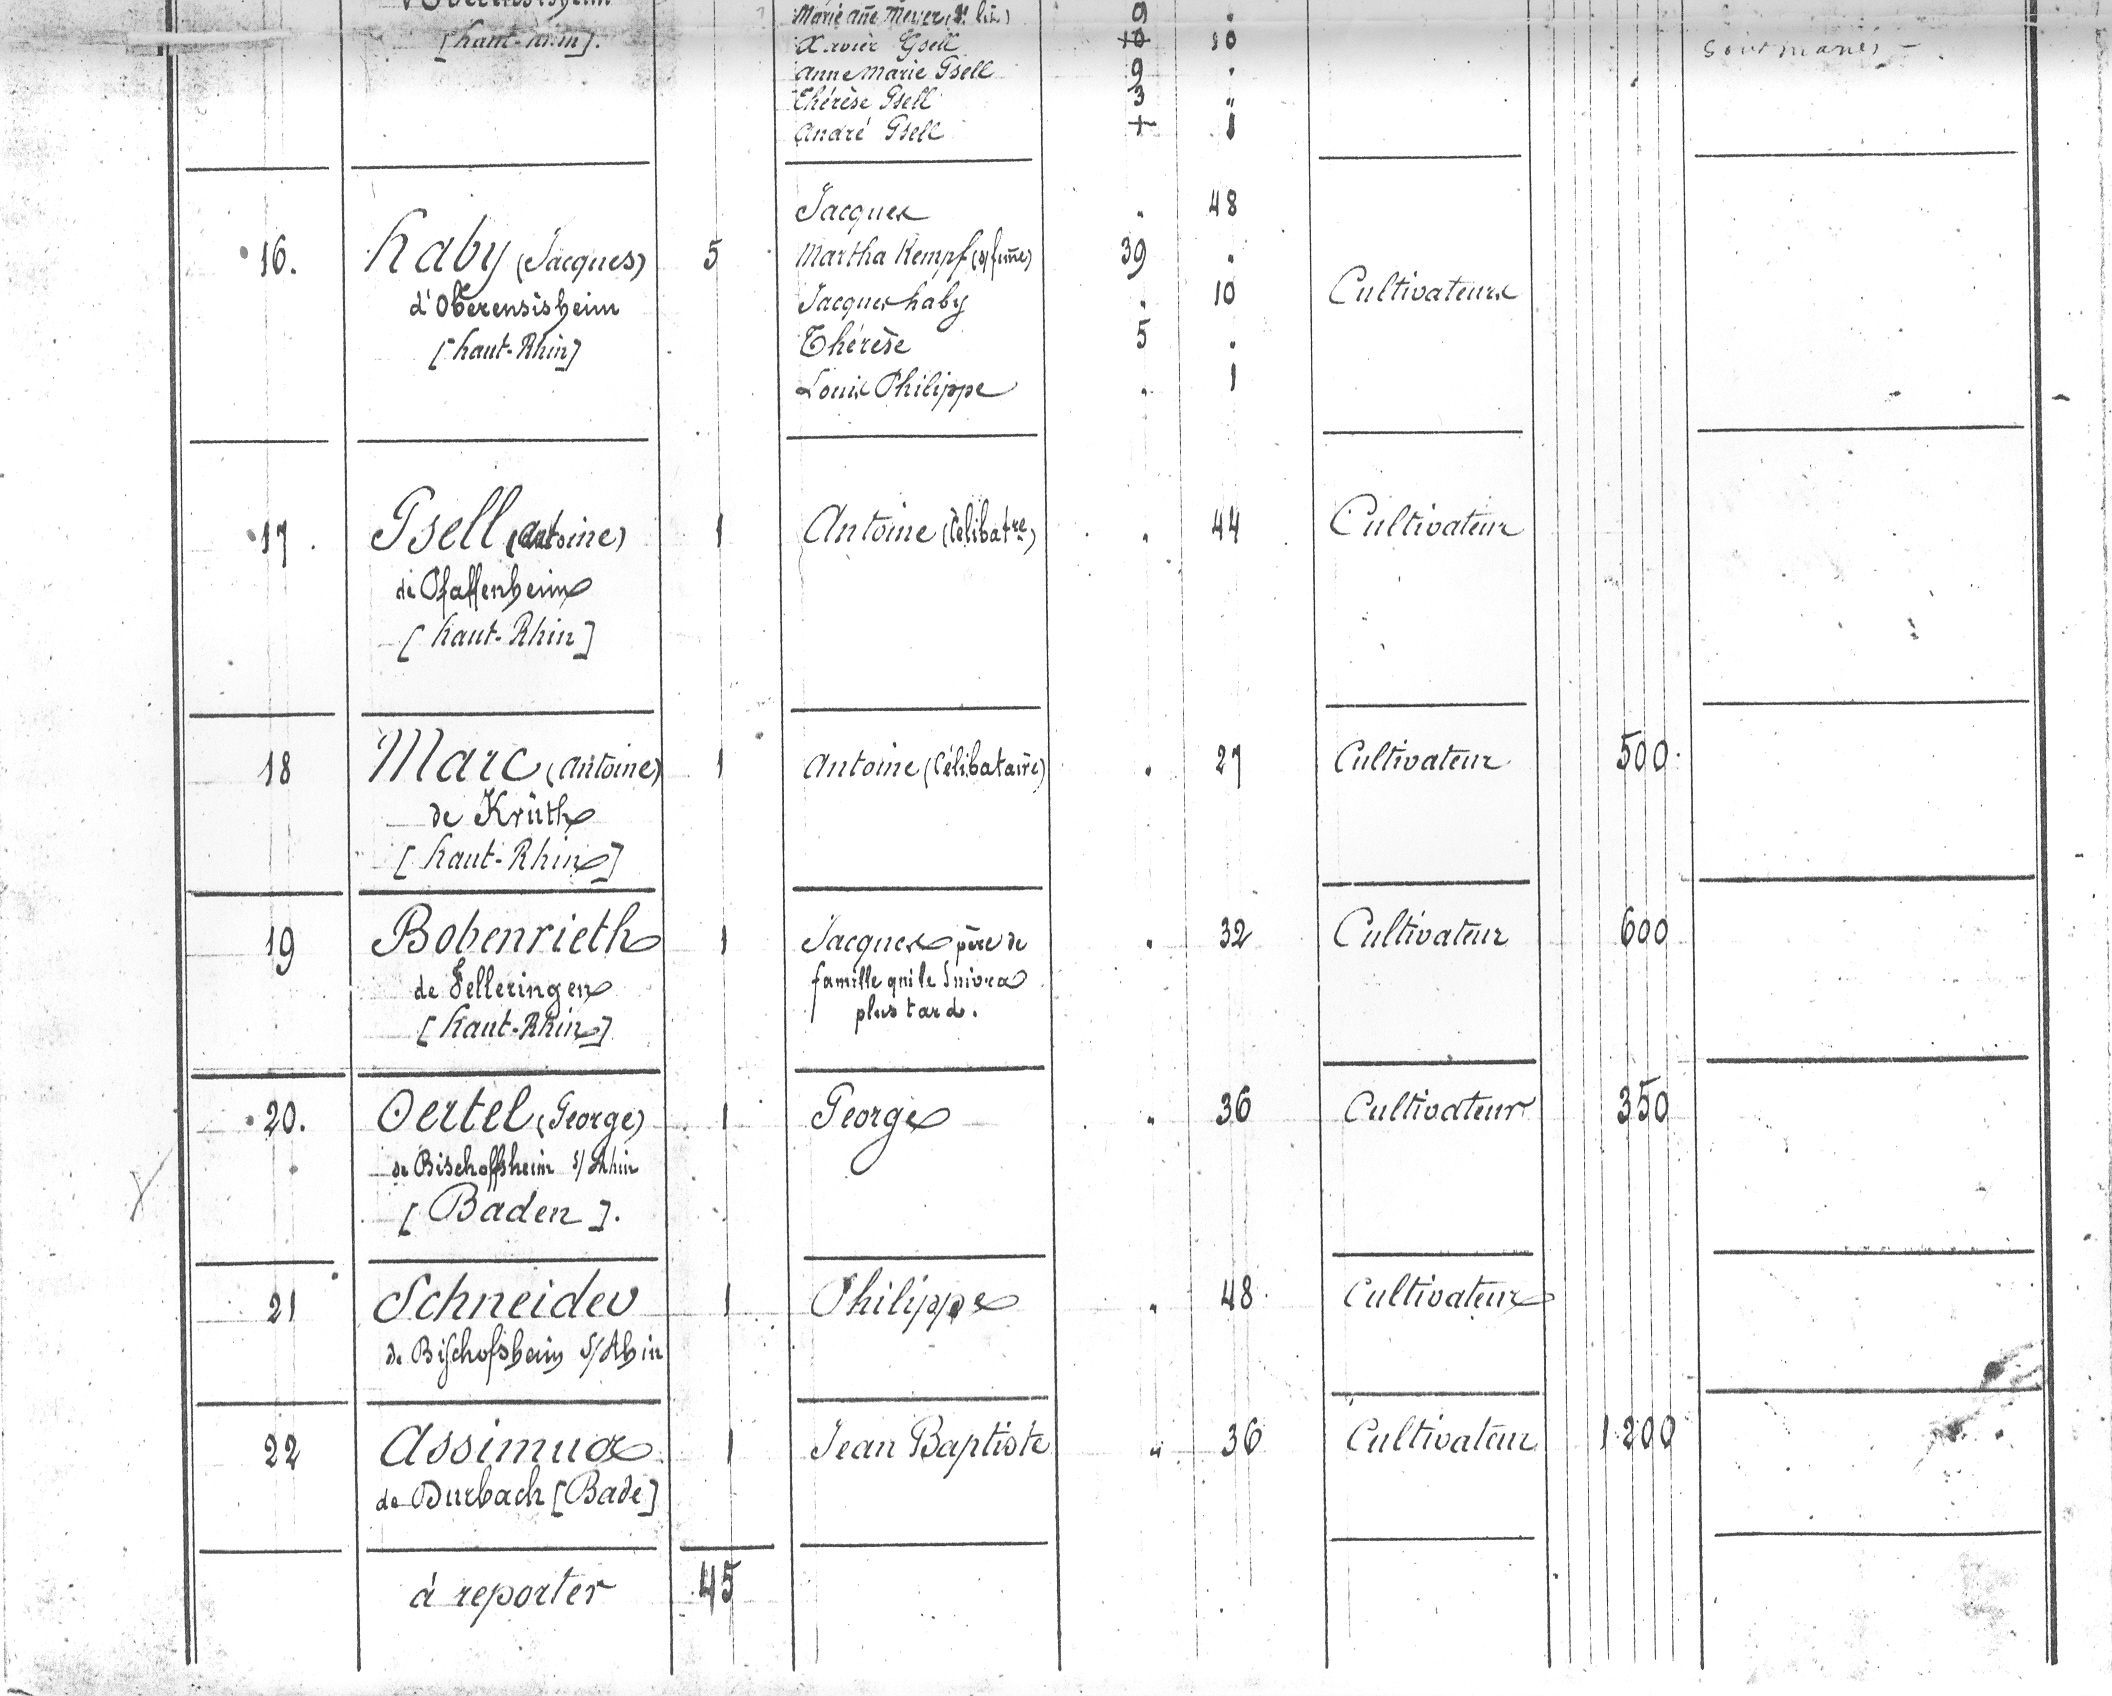 d'Oberensisheim
[haut-Rhin].
Marie Añe Meyer (1er lit) 9 "
Xavier Gsell 10 10
Anne Marie Gsell 9 "
Thérèse Gsell 3 "
André Gsell + 1
sont mariés -
16. haby (Jacques) 5
d'Oberensisheim
[haut-Rhin]
Jacques " 48
Martha Kempf (s/ fuñe) 39 "
Jacques haby " 10
Thérèse 5 "
Louis Philippe " 1
Cultivateurs
17. Gsell (Antoine) 1 Antoine (Célibatre) " 44 Cultivateur
de Pfaffenheim
[haut-Rhin]
18 Marc (Antoine) 1 Antoine (Célibataire) " 27 Cultivateur 500
de Krüth
[haut-Rhin]
19 Bobenrieth 1 Jacques père de " 32 Cultivateur 600
de Felleringen famille qui le Suivra
[haut-Rhin] plus tard.
20. Oertel (George) 1 George " 36 Cultivateur 350
de Bischoffsheim s/ Rhin
[Baden].
21 Schneider 1 Philippe " 48 Cultivateur
de Bischofsheim s/ Rhin
22 Assimus 1 Jean Baptiste " 36 Cultivateur 1200
de Durbach [Bade]
à reporter 45